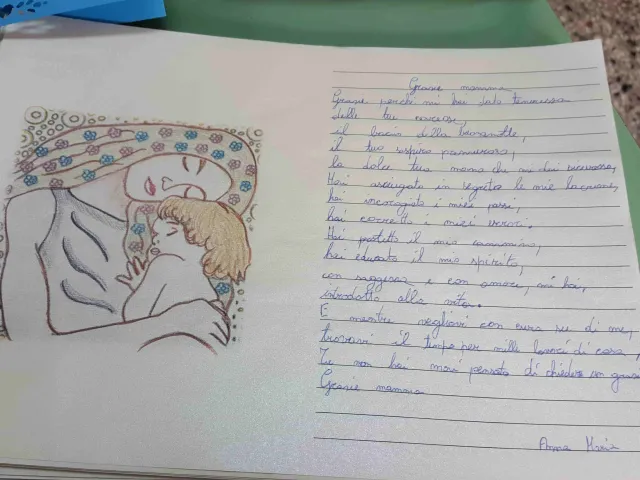 Grazie mamma
Grazie perché mi hai dato tenerezza
delle tue carezze,
il bacio della buonanotte,
il tuo sospiro premuroso,
la dolce tua mano che mi dai sicurezza,
Hai asciugato in segreto le mie lacrime,
hai incoraggiato i miei passi,
hai corretto i miei errori.
Hai protetto il mio cammino,
hai educato il mio spirito,
con saggezza e con amore, mi hai,
introdotto alla vita.
E mentre vegliavi con cura su di me,
trovavi il tempo per mille lavori di casa,
Tu non hai mai pensato di chiedere un grazie
Grazie mamma
Anna Maria